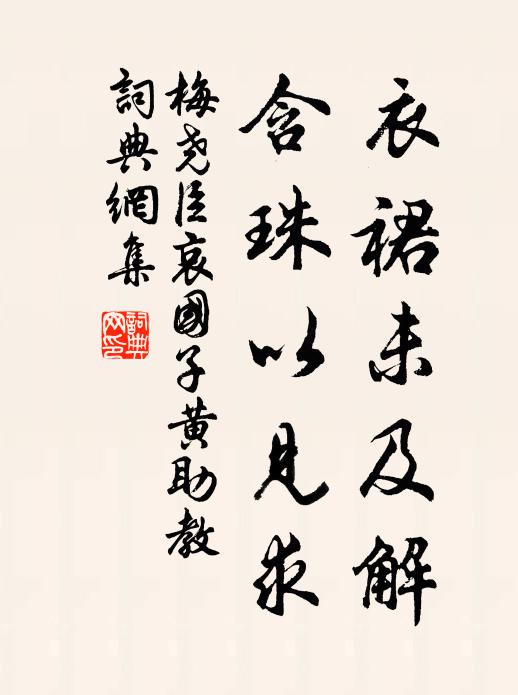 衣裙未及解
含珠以見求
梅堯臣哀國子黃助教
詞典網集
詞典
网印